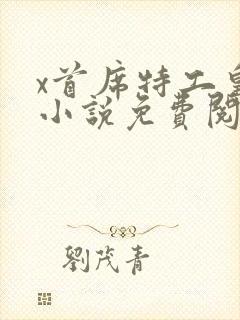 x首席特工皇
小說免費閱
劉茂青